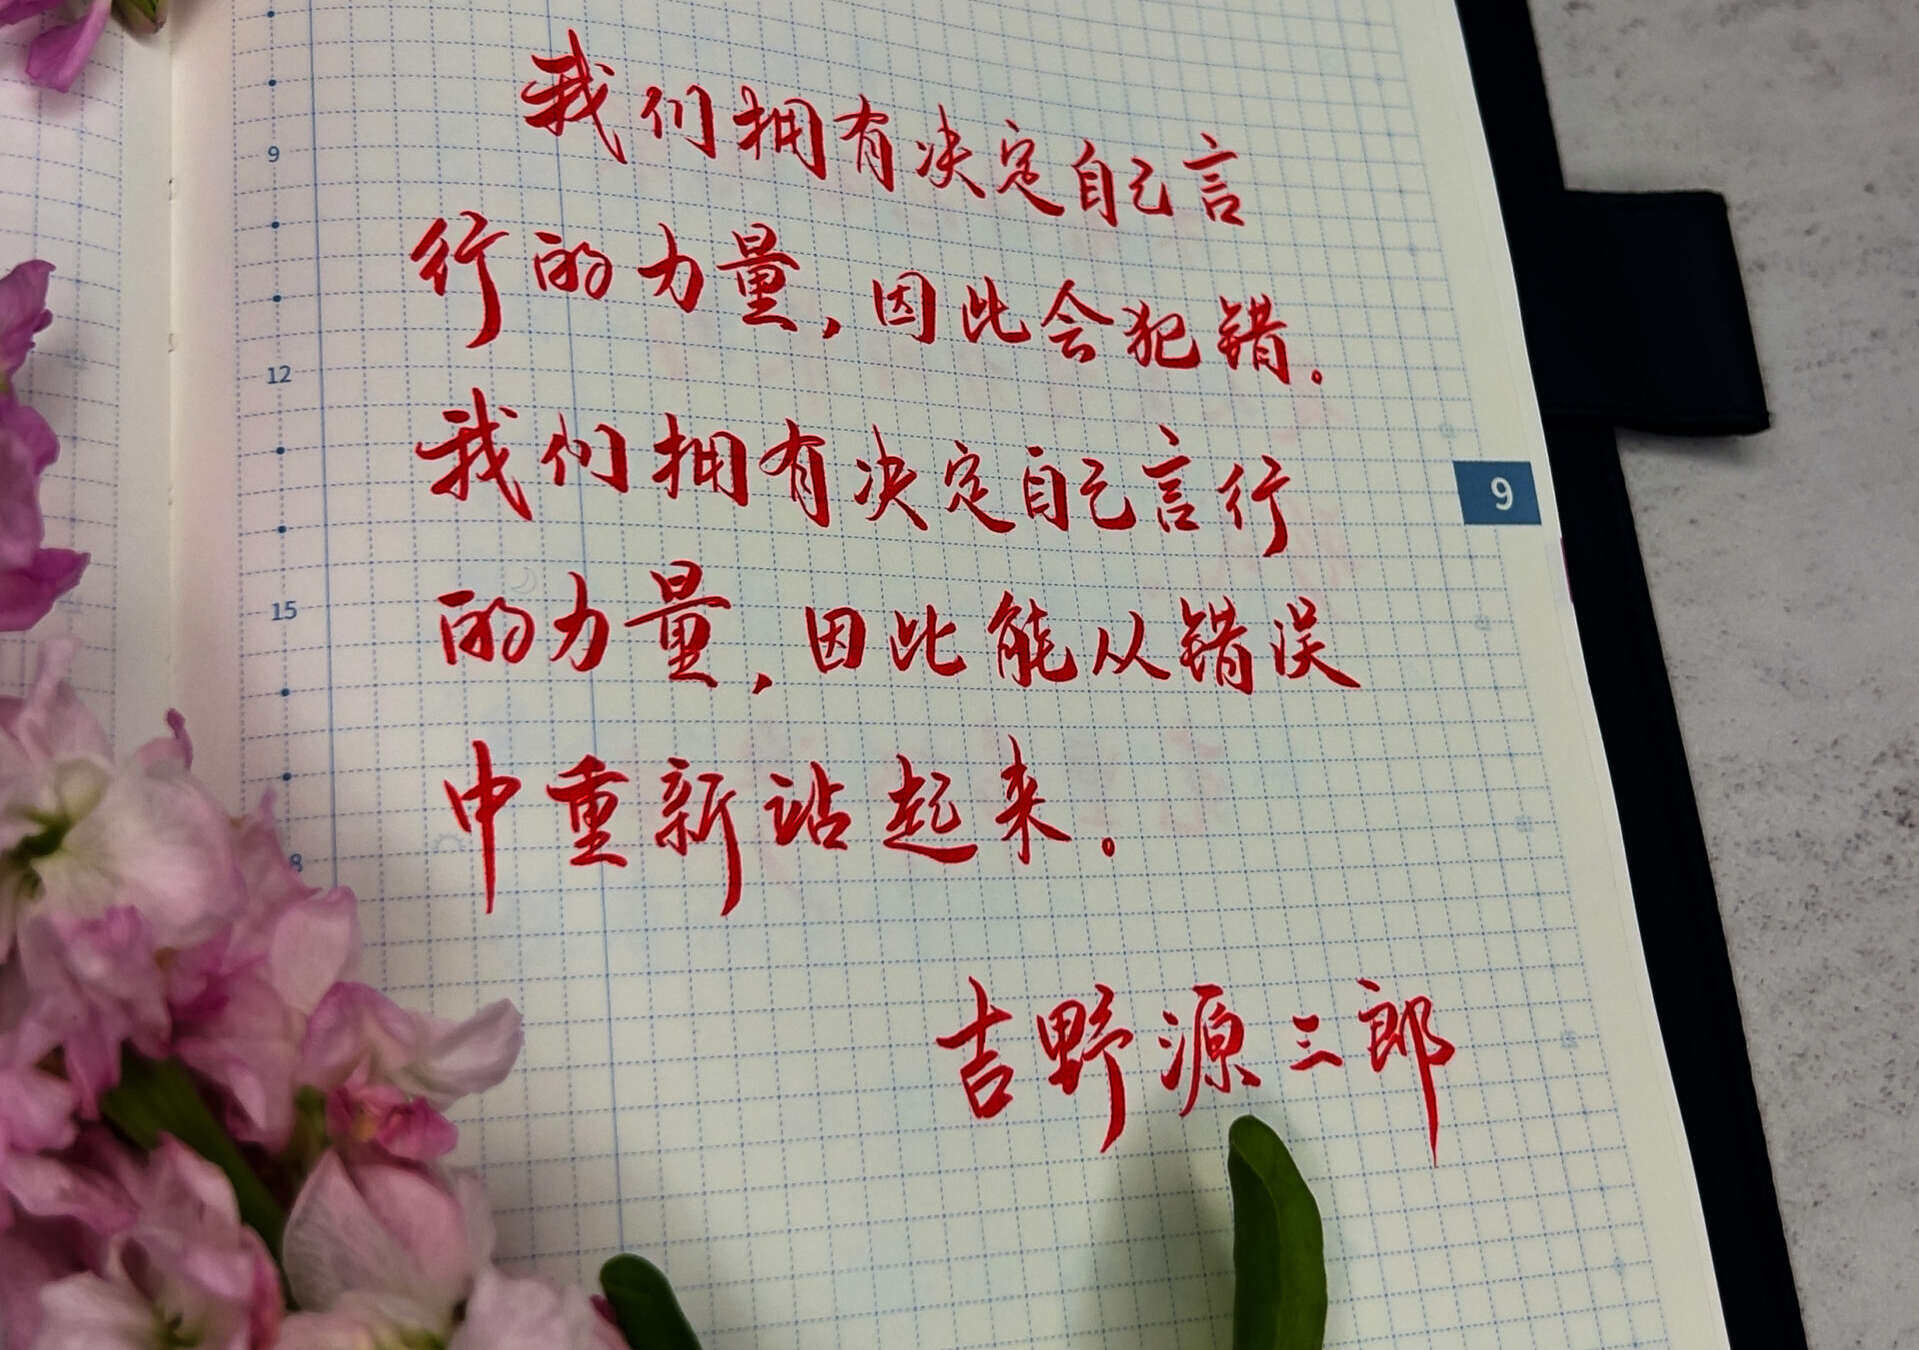 我们拥有决定自己言
行的力量,因此会犯错。
我们拥有决定自己言行
的力量,因此能从错误
中重新站起来。
吉野源三郎
9
12
15
8
9